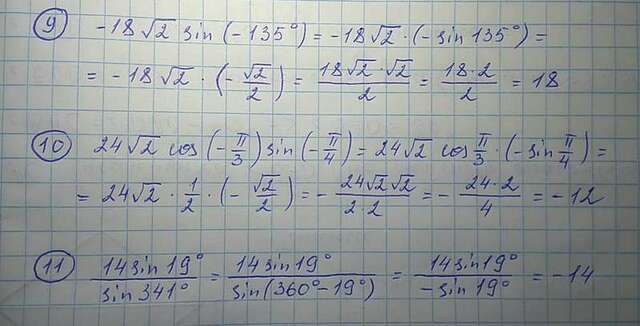 9 -18√2 sin(-135°) = -18√2 · (-sin 135°) =
= -18√2 · (-√2/2) = 18√2·√2/2 = 18·2/2 = 18
10 24√2 cos(-π/3) sin(-π/4) = 24√2 cos π/3 · (-sin π/4) =
= 24√2 · 1/2 · (-√2/2) = - 24√2√2/2·2 = - 24·2/4 = -12
11 14 sin 19°/sin 341° = 14 sin 19°/sin(360°-19°) = 14 sin 19°/-sin 19° = -14